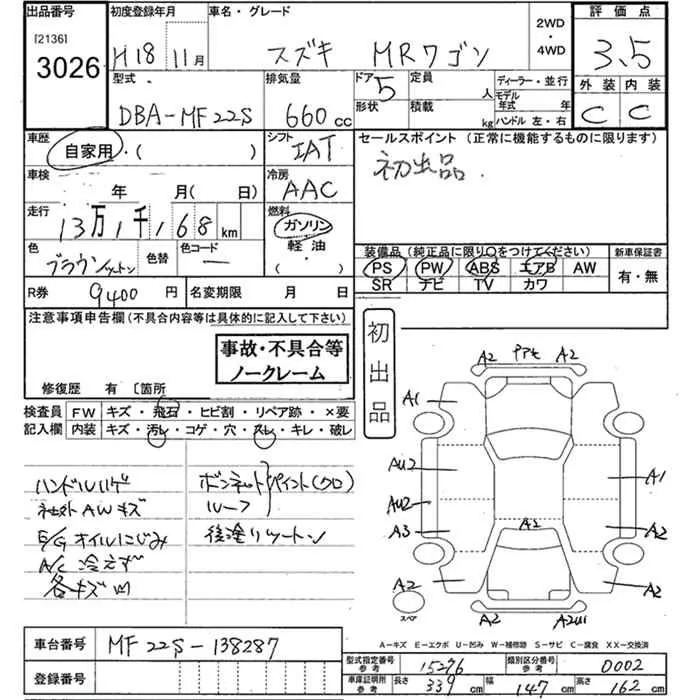 出品番号 初度登録年月 車名・グレード 2WD・4WD 評価点
[2136] 3026 H18 11月 スズキ MRワゴン 3.5
型式 排気量 ドア 定員 ディーラー・並行 外装 内装
DBA-MF22S 660cc 5 形状 人 積載 kg モデル年式 年 ハンドル 左・右 C C
車歴 シフト セールスポイント（正常に機能するものに限ります）
自家用・( ) IAT 初出品.
車検 年 月(日) 冷房 AAC
走行 13万1千168km 燃料 ガソリン 軽油 ( )
色 ブラウンツートン 色替 色コード —
装備品（純正品に限り○をつけてください） 新車保証書
PS PW ABS エアB AW 有・無
SR ナビ TV カワ
R券 9400円 名変期限 月 日
注意事項申告欄(不具合内容等は具体的に記入して下さい)
事故・不具合等
ノークレーム
修復歴 有 〔箇所
初出品
検査員記入欄 FW キズ・飛石・ヒビ割・リペア跡・×要
内装 キズ・汚レ・コゲ・穴・スレ・キレ・破レ
ハンドルハゲ
社外AWキズ
E/Gオイルにじみ
A/C 冷えず
各キズ凹
ボンネット ルーフ ペイント(クロ)
後塗りツートン
A2 アアセ A2
A1
AU2 A1
AU2
A3 A2 A2
A2 A2
スペア
A2 A2U1
A－キズ E－エクボ U－凹み W－補修跡 S－サビ C－腐食 XX－交換済
車台番号 MF22S-138287
登録番号
型式指定番号 参考 15276 類別区分番号 参考 0002
車庫証明用 参考 長さ 339cm 幅 147cm 高さ 162cm